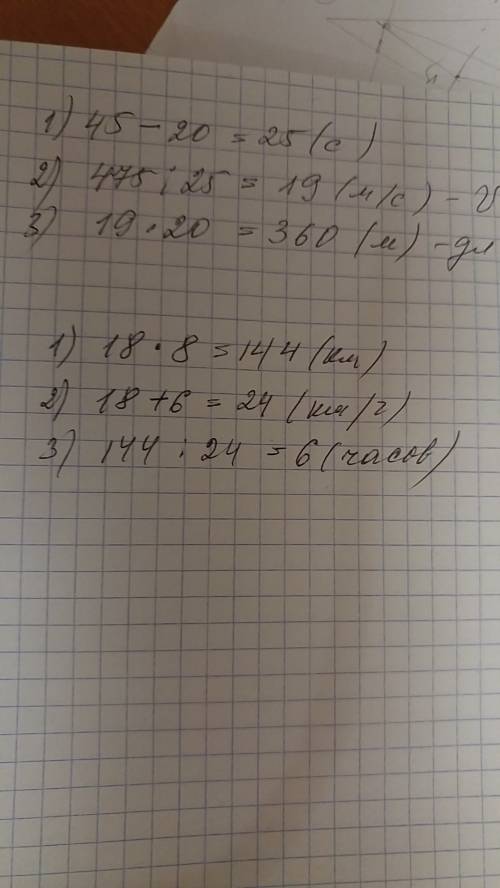 1) 45 - 20 = 25 (с)
2) 475 : 25 = 19 (м/с) - V
3) 19 · 20 = 360 (м) - дл
1) 18 · 8 = 144 (км)
2) 18 + 6 = 24 (км/ч)
3) 144 : 24 = 6 (часов)